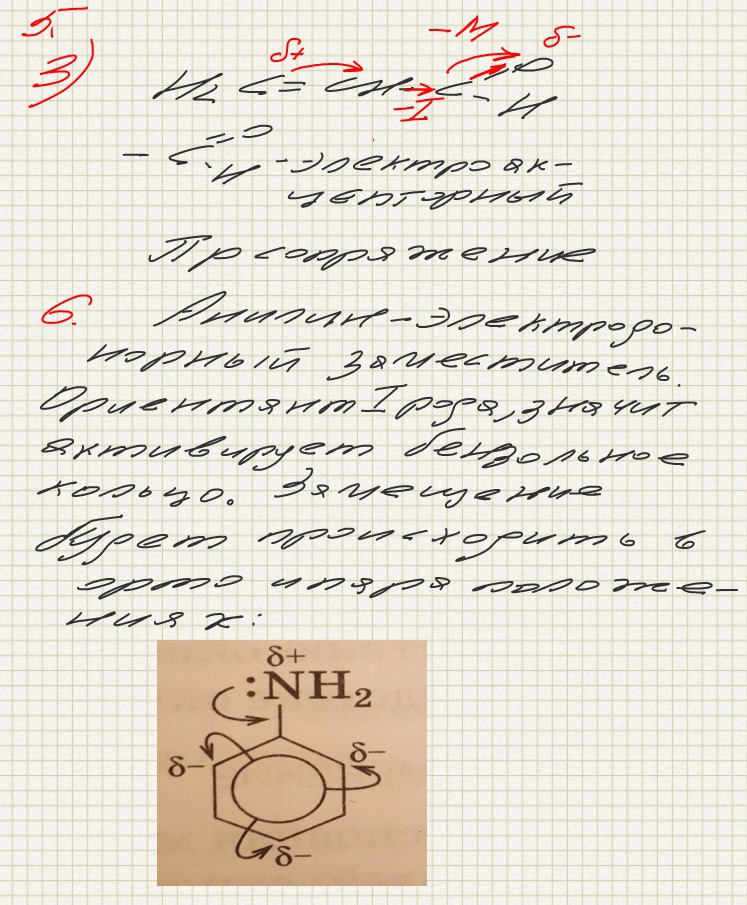 5
3)
-M
δ+ δ-
H2C=CH-C=O
-I
-H
-C=O
H - электроак-
цепторный
Пр сопряжение
6. Анилин-электродо-
норный заместитель.
Ориентант I рода, значит
активирует бензольное
кольцо. Замещение
будет происходить в
орто и пара положе-
ниях:
δ+
:NH2
δ- δ-
δ-